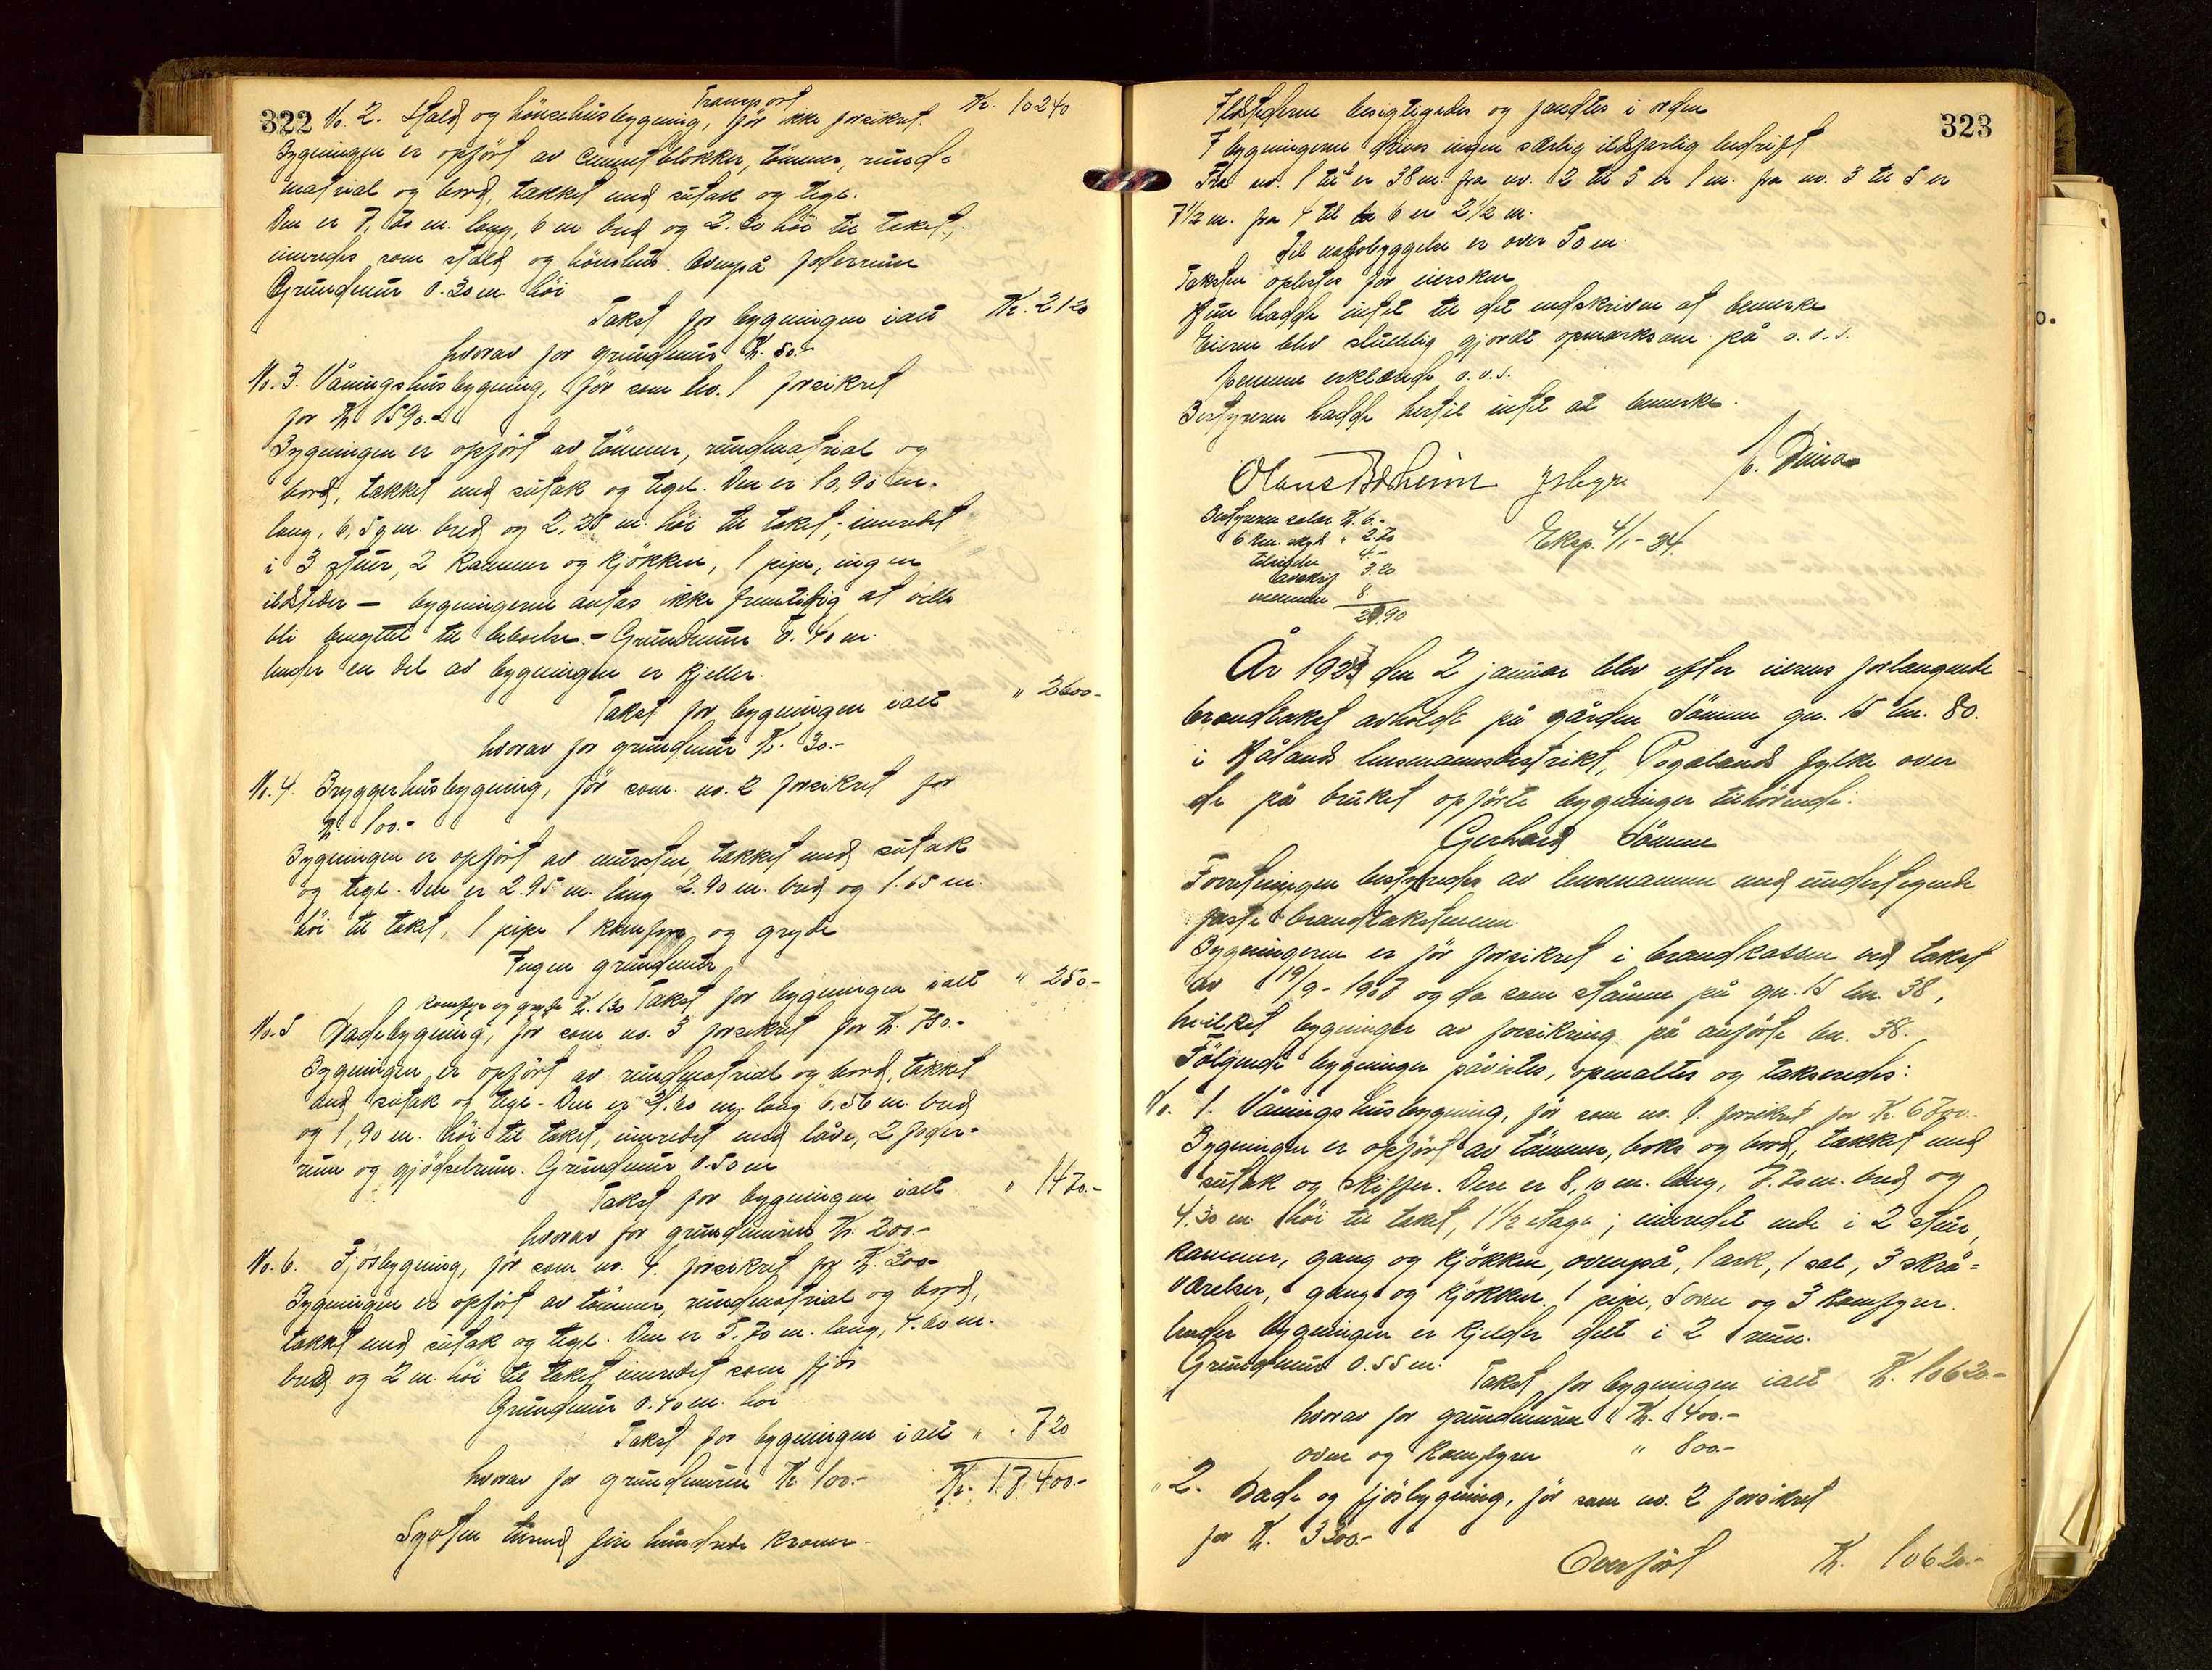 322
Transport Kr. 10240
No. 2. Stald og hönsehusbygning, för ikke forsikret.
Bygningen er opfört av cementblokker, tömmer, rund-
matrial og bord, tækket med sutak og tegl.
Den er 7,60 m. lang, 6 m bred og 2.60 höi til taket,
innredes som stald og hönsehus. Ovenpå foderrum
Grundmur 0.30 m. höi
Takst for bygningen ialt Kr. 2120
hvorav for grundmur Kr. 50.-
No. 3. Våningshusbygning, för som No. 1 forsikret
for Kr 1590.-
Bygningen er opfört av tömmer, rundmatrial og
bord, tækket med sutak og tegl. Den er 10,90 m.
lang, 6,59 m. bred og 2,25 m. höi til taket, innredet
i 3 stuer, 2 kammer og kjökken, 1 pipe, ingen
ildsteder - bygningerne antas ikke fremtidig at ville
bli benyttet til beboelse. - Grundmur 0.40 m.
Under en del av bygningen er kjeller.
Takst for bygningen ialt " 2600-
hvorav for grundmur Kr. 30.-
No. 4. Bryggerhusbygning, för som no. 2 forsikret for
Kr. 100.-
Bygningen er opfört av mursten, tækket med sutak
og tegl. Den er 2.95 m. lang 2.90 m. bred og 1.65 m.
höi til taket, 1 pipe 1 komfyr og gryde
Ingen grundmur
komfyr og gryde Kr. 130 Takst for bygningen ialt " 250.-
No. 5 Ladebygning, för som no. 3 forsikret for Kr. 750.-
Bygningen er opfört av rundmatrial og bord, tækket
med sutak og tegl. Den er 21.60 m. lang 6.56 m. bred
og 1,90 m. höi til taket, innredet med låve, 2 foder-
rum og gjödselrum. Grundmur 0.50 m
Takst for bygningen ialt " 1470.-
hvorav for grundmuren Kr. 200.-
No. 6. Fjösbygning, för som no. 4. forsikret for Kr. 300-
Bygningen er opfört av tömmer, rundmatrial og bord,
tækket med sutak og tegl. Den er 5.70 m. lang, 4.60 m.
bred og 2 m. höi til taket innredet som fjös
Grundmur 0.40 m. höi
Takst for bygningen ialt " 720
hvorav for grundmuren Kr 100.- Kr. 17400.-
Sytten tusend fire hundrede kroner.
323
Ildstederne besigtigedes og fandtes i orden
I bygningerne drives ingen særlig ildsfarlig bedrift
Fra no. 1 til 2 er 38 m. fra no. 2 til 5 er 1 m. fra no. 3 til 5 er
7 1/2 m. fra 4 til 6 er 2 1/2 m.
Til nabobyggelse er over 50 m.
Taksten oplestes for eiersken
Hun hadde intet til det nedskrivne at bemerke
Eieren blev sluttelig gjordt opmerksom på o.s.v.
hennne erklærede o.s.v.
Bestyreren hadde hertil intet at bemerke.
Bestyreren salær Kr. 6.-
6 km. skyds " 2.70
4.-
avskrift 3.20
8.
Eksp. 4/1-34.
År 1933 den 2 januar blev efter eierens forlangende
brandtakst avholdt på gården Sömme gn. 15 bn. 80.
i Håland lensmannsdistrikt, Rogaland fylke over
de på bruket opförte bygninger tilhörende:
Gerhard Sömme
Forretningen bestyredes av lensmannen med undertegnede
faste brandtakstmenn
Bygningerne er för forsikret i brandkassen ved takst
av 19/9-1907 og da som Sömme på gn. 15 bn. 38,
hvilket bygninger av forsikring på anförte bn. 38.
Fölgende bygninger påvistes, opmaltes og takseredes:
No. 1. Våningshusbygning, för som no. 1. forsikret for Kr 6700.-
Bygningen er opfört av tömmer, boks og bord, tækket med
sutak og skiffer. Den er 8,10 m. lang, 7.70 m. bred og
4.30 m höi til taket, 1 1/2 etage; innredet nede i 2 stuer,
kammer, gang og kjökken, ovenpå, 1 ark, 1 sal, 3 skrå-
værelser, gang og kjökken. 1 pipe, 5 ovne og 3 komfyrer.
Under bygningen er kjelder delt i 2 rum.
Grundmur 0.55 m.
Takst for bygningen ialt Kr. 10620.-
hvorav for grundmuren Kr. 400.-
ovne og komfyrer " 800.-
" 2. Lade og fjösbygning, för som no. 2 forsikret
for Kr. 3300.-
Overfört Kr. 10620.-